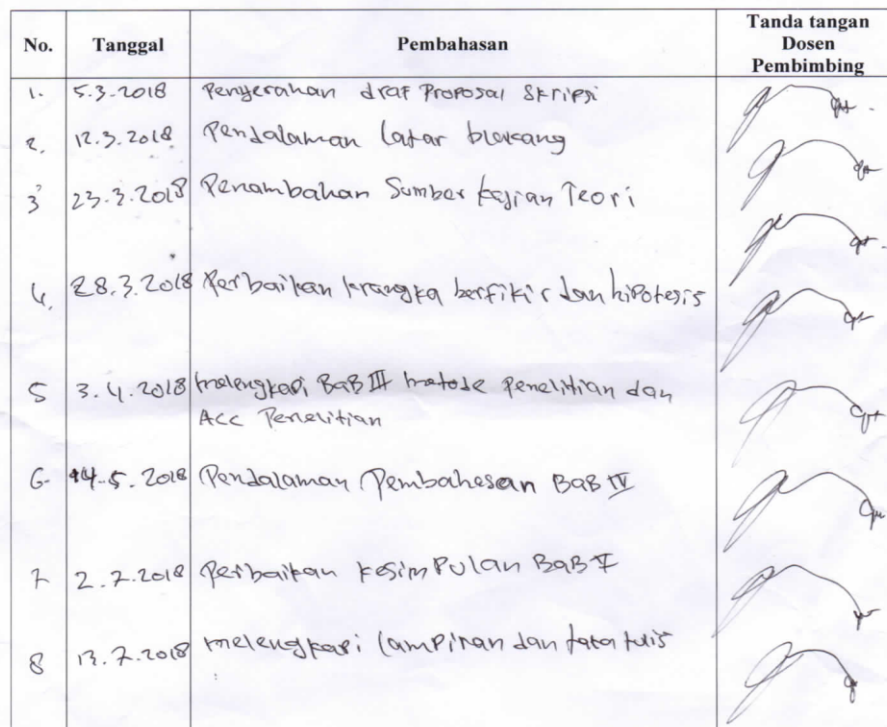 No. Tanggal Pembahasan Tanda tangan
Dosen
Pembimbing
1. 5.3.2018 Penyerahan draf Proposal Skripsi
2. 12.3.2018 Pendalaman latar blakang
3 23.3.2018 Penambahan Sumber kajian Teori
4. 28.3.2018 Perbaikan krangka berfikir dan hipotesis
5 3.4.2018 melengkapi BaB III metode Penelitian dan
Acc Penelitian
6. 14.5.2018 Pendalaman Pembahasan BaB IV
7 2.7.2018 Perbaikan kesimpulan BaB V
8 13.7.2018 melengkapi lampiran dan tata tulis